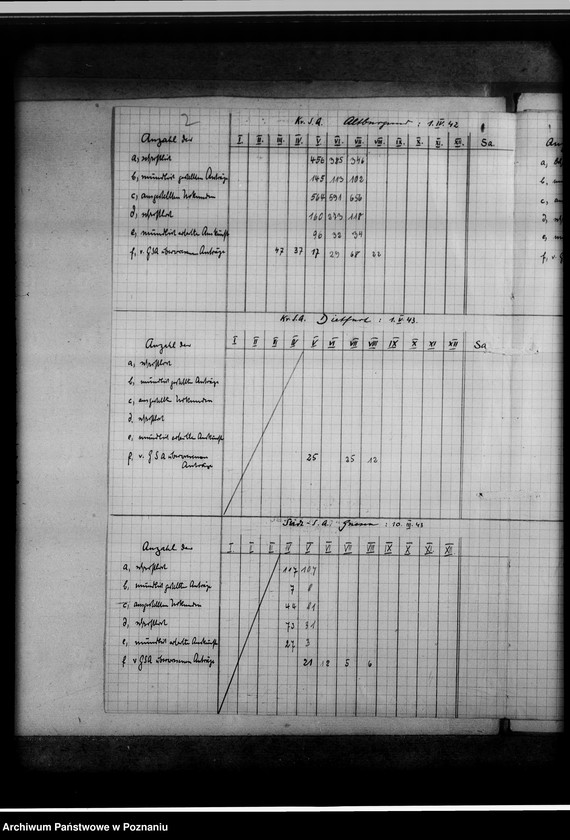 2
Kr. S.A. Altburgund : 1. IV. 42
Anzahl der I. II. III. IV. V. VI. VII. VIII. IX. X. XI. XII. Sa.
a, 456 385 346
b, mündlich gestellten Anträge 145 119 102
c, ausgestellten Urkunden 564 591 656
d, 160 233 118
e, mündlich erteilten Auskünfte 96 32 94
f, v. GSA Anträge 47 37 17 29 68 22
Kr. S.A. Dietfurt : 1. V. 43.
Anzahl der I II III IV V VI VII VIII IX X XI XII Sa
a,
b, mündlich gestellten Anträge
c, ausgestellten Urkunden
d,
e, mündlich erteilten Auskünfte
f, v. GSA
Anträge 25 25 12
S.A. Gnesen : 10. III. 43
Anzahl der I II III IV V VI VII VIII IX X XI XII
a, 117 107
b, mündlich gestellten Anträge 7 8
c, ausgestellten Urkunden 44 81
d, 73 31
e, mündlich erteilten Auskünfte 27 3
f, v GSA Anträge 21 12 5 6
Archiwum Państwowe w Poznaniu